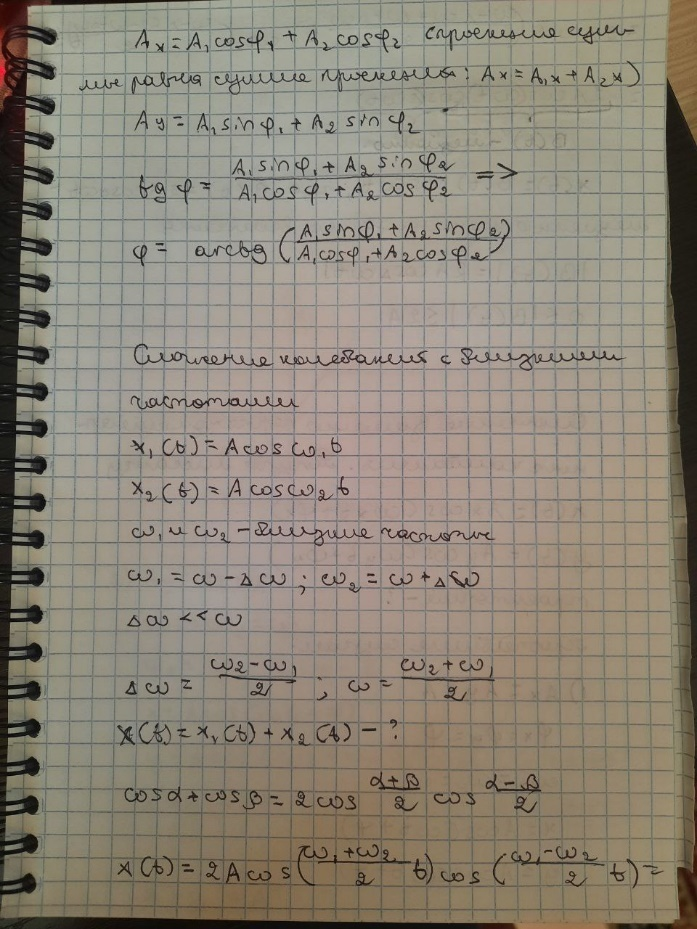 Aₓ = A₁cosφ₁ + A₂cosφ₂ (проекция сум-
мы равна сумме проекций: Aₓ = A₁ₓ + A₂ₓ)
Ay = A₁sinφ₁ + A₂sinφ₂
tgφ = (A₁sinφ₁ + A₂sinφ₂)/(A₁cosφ₁ + A₂cosφ₂) =>
φ = arctg((A₁sinφ₁ + A₂sinφ₂)/(A₁cosφ₁ + A₂cosφ₂))
Сложение колебаний с близкими
частотами
x₁(t) = Acosω₁t
x₂(t) = Acosω₂t
ω₁ и ω₂ – близкие частоты
ω₁ = ω - Δω ; ω₂ = ω + Δω
Δω << ω
Δω = (ω₂ - ω₁)/2 ; ω = (ω₂ + ω₁)/2
x(t) = x₁(t) + x₂(t) - ?
cosα + cosβ = 2cos (α+β)/2 cos (α-β)/2
x(t) = 2Acos((ω₁ + ω₂)/2 t)cos((ω₁ - ω₂)/2 t) =